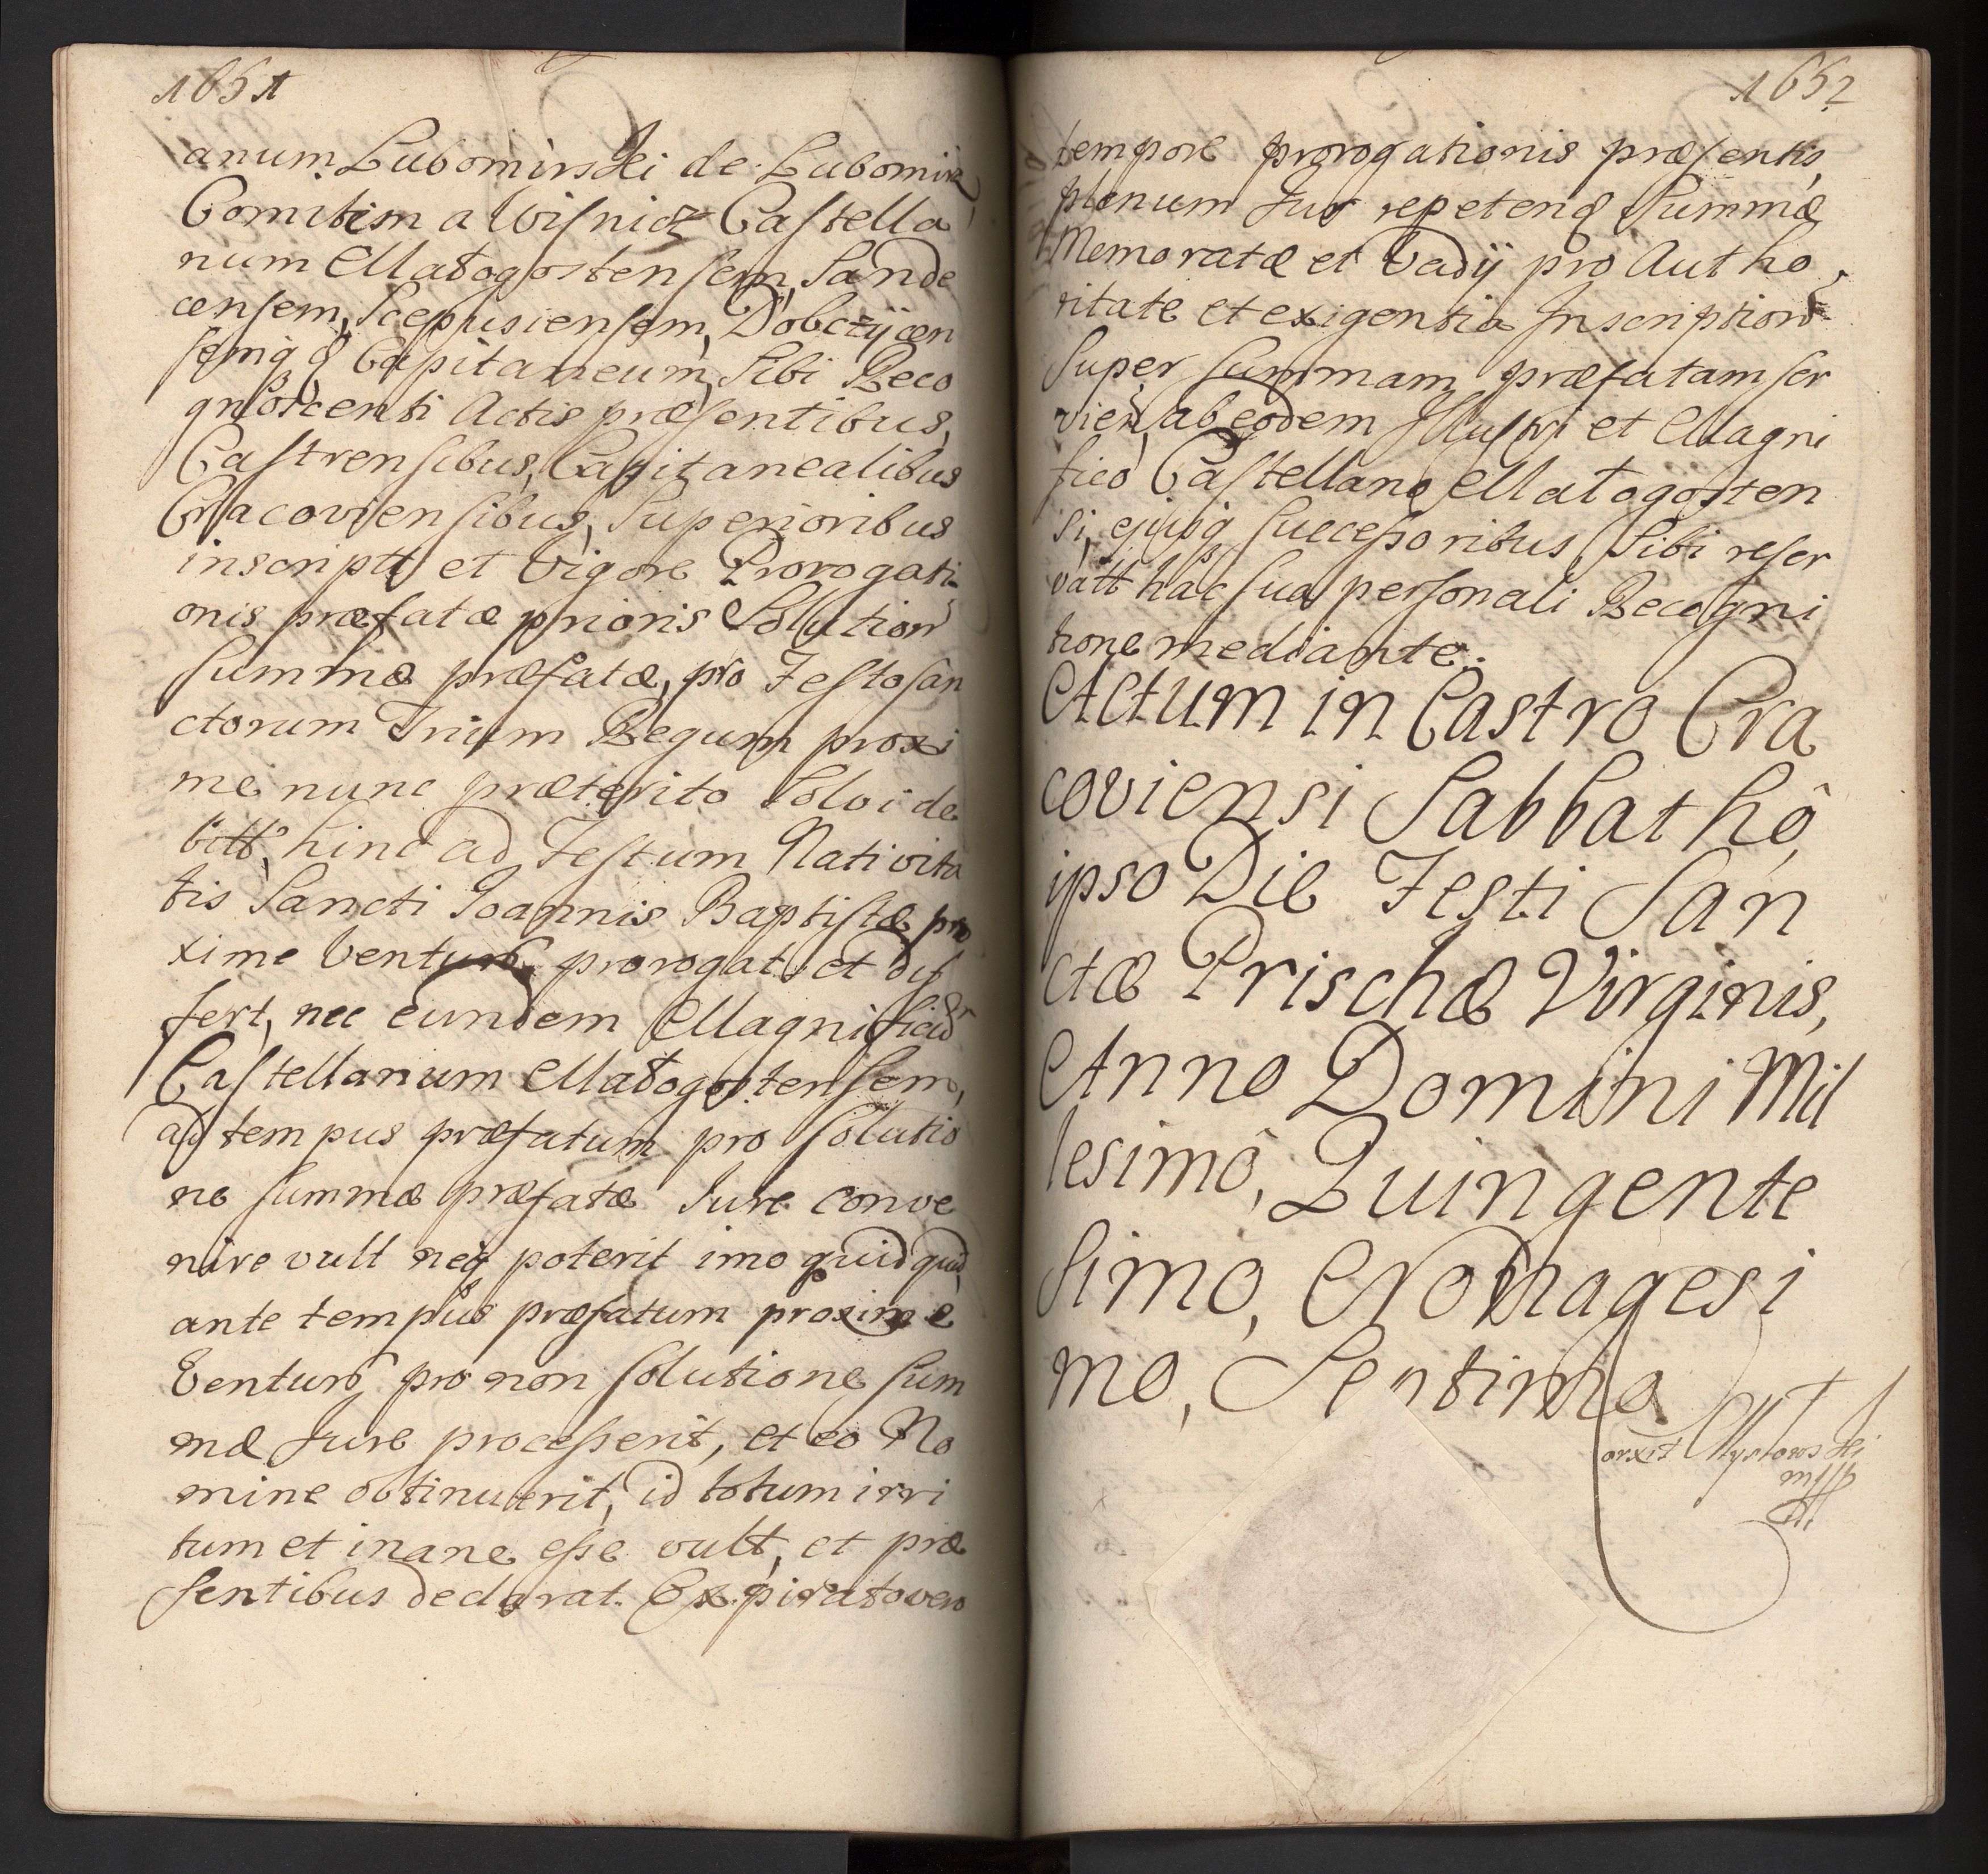 1651
anum Lubomirski de Lubomirz
Comitem a Wisnicz Castella
num Małogostensem, Sande
censem, Scepusiensem, Dobczÿcen
semqȝ Capitaneum, Sibi Reco
gnoscenti Actis præsentibus,
Castrensibus, Capitanealibus
Cracoviensibus, Superioribus
inscriptt et Vigore Prorogati
onis præfatæ prioris Solution
summæ præfatæ, pro Festo san
ctorum Trium Regum proxi
me nunc præterito Solvi de
bitt, hinc ad Festum Nativita
tis Sancti Joannis Baptistæ pro
xime Ventur prorogat et dif
fert, nec eundem Magnificum
Castellanum Małogostensem,
ad tempus præfatum pro solutio
ne summæ præfatæ Jure conve
nire vult neq poterit imo quidquid
ante tempus præfatum proxime
Ventur pro non solutione sum
mæ Jure processerit, et eo No
mine obtinuerit, id totum irri
tum et inane esse vult, et præ
sentibus declarat. Expirato vero
1652
tempore prorogationis præsentis,
plenum Jus repetend Summæ
Memoratæ et Vadÿ pro Autho
ritate et exigentia Inscription
Super summam præfatam ser
vien, ab eodem Illustri et Magni
fico Castellano Małogosten
si, ejusq successoribus, Sibi reser
vatt hac sua personali Recogni
tione mediante.
Actum in Castro Cra
coviensi Sabbathô,
ipso Die Festi San
ctæ Prischæ Virginis,
Anno Domini Mil
lesimô, Quingente
simo, Nonagesi
mo, Septimo